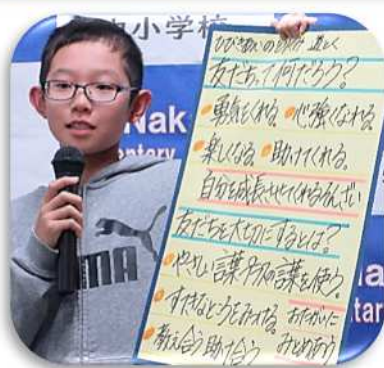 中小学校
Nak
entary
PUMA
友だちって何だろう?
・勇気をくれる ・心強くなれる
・楽しくなる ・助けてくれる。
自分を成長させてくれるそんざい
友だちを大切にするとは?
・やさしい言葉・プラスの言葉を使う。
・すてきなところをみつける。 おたがいに
・教え合う 助け合う みとめあう
a
tar